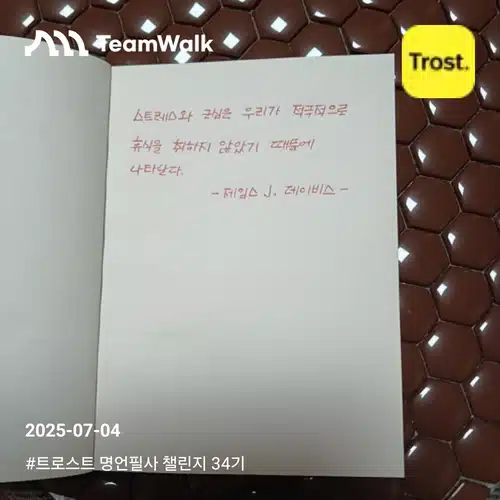 TeamWalk
Trost.
스트레스와 근심은 우리가 적극적으로
휴식을 취하지 않았기 때문에
나타난다.
- 제임스 J. 데이비스 -
2025-07-04
#트로스트 명언필사 챌린지 34기